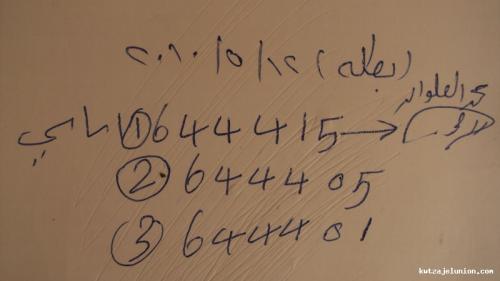 (بطله) ٢٠١٠/٥/١٢
محمد العلوان
سامي ① 644415
② 644405
③ 644401
kwtzajelunion.com